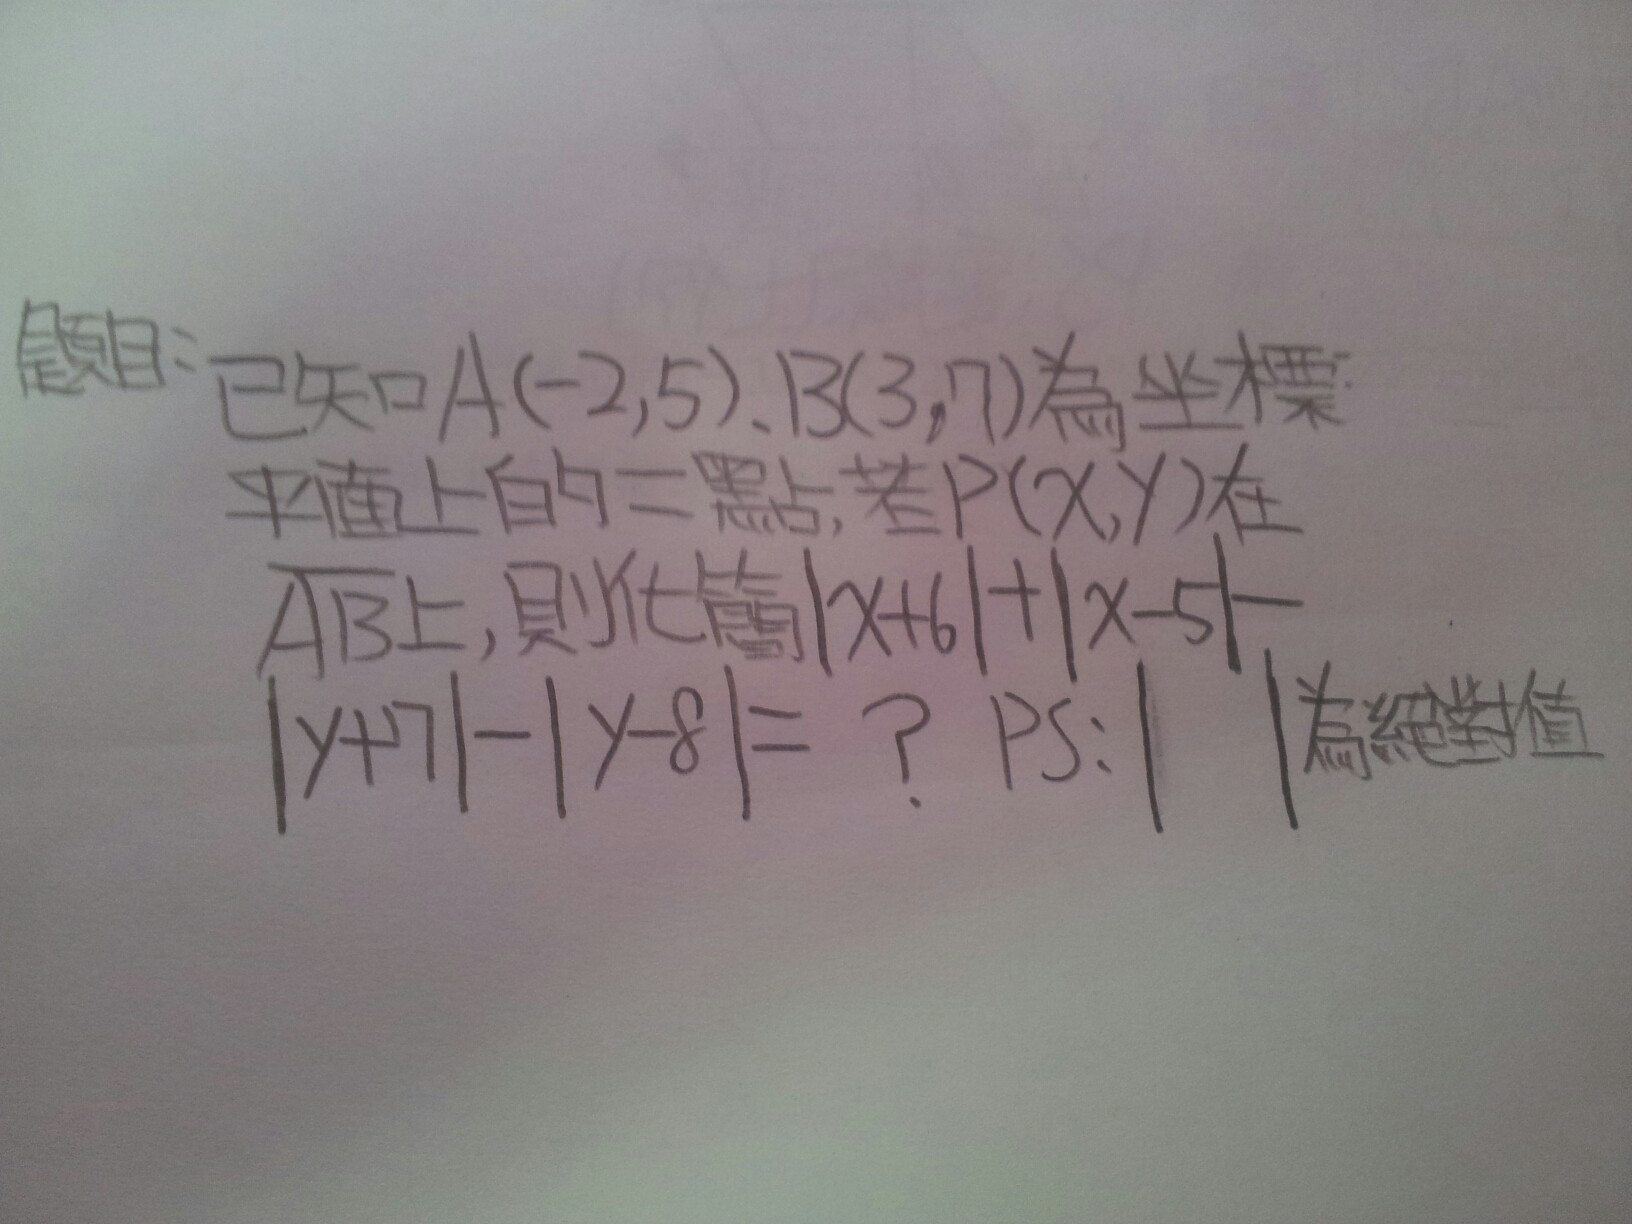 題目:已知A(-2,5)、B(3,7)為坐標
平面上的二點,若P(x,y)在
A̅B̅上,則化簡|x+6|+|x-5|-
|y+7|-|y-8|= ? PS:|  |為絕對值